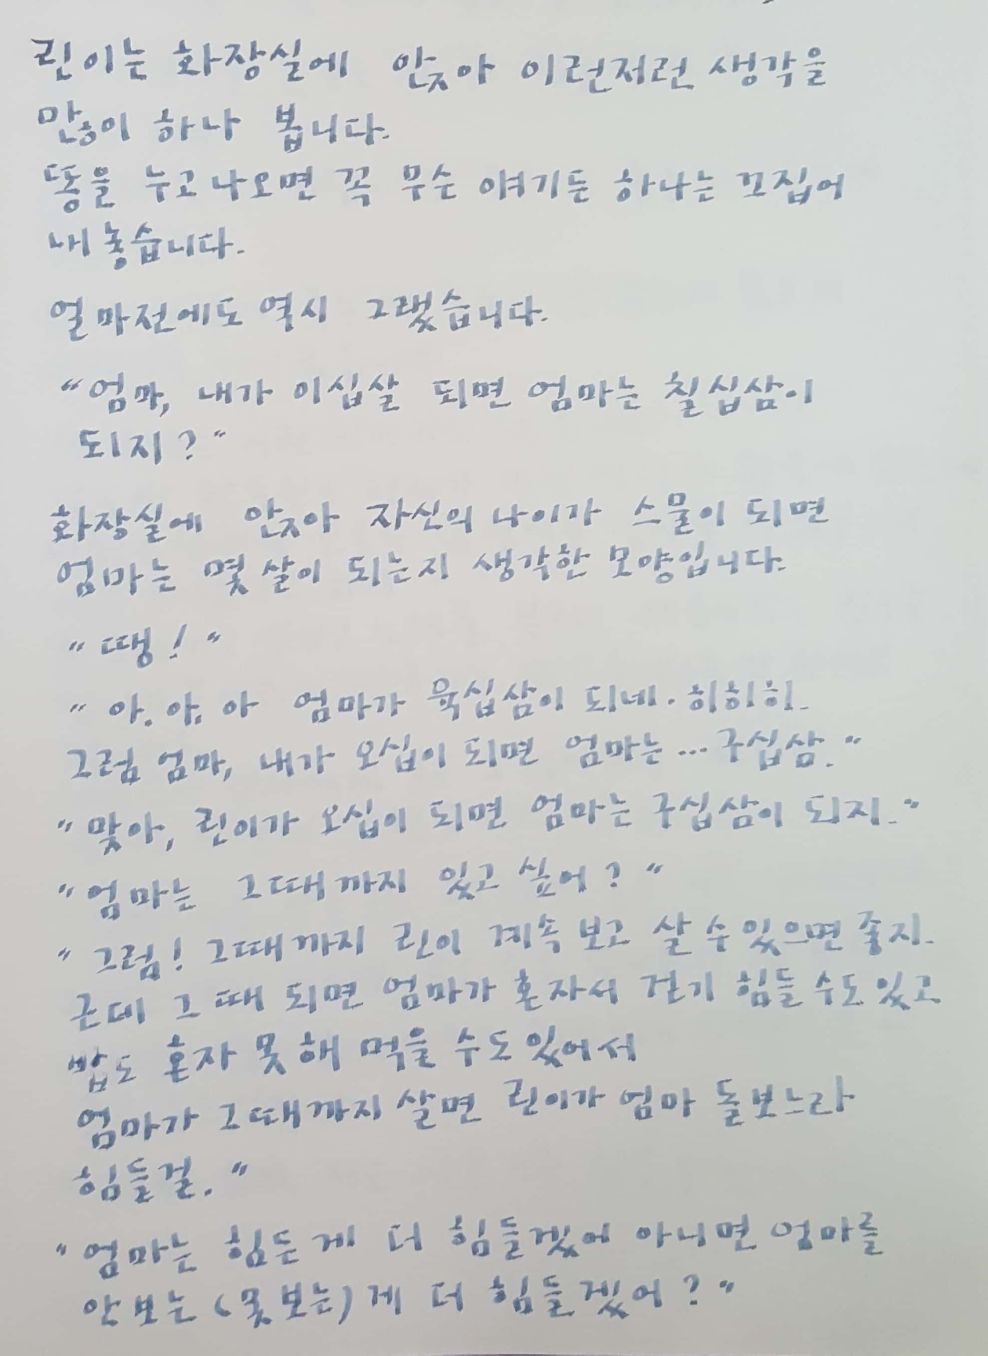 린이는 화장실에 앉아 이런저런 생각을
많이 하나 봅니다.
똥을 누고 나오면 꼭 무슨 얘기든 하나는 끄집어
내 놓습니다.
얼마전에도 역시 그랬습니다.
"엄마, 내가 이십살 되면 엄마는 칠십삼이
되지?"
화장실에 앉아 자신의 나이가 스물이 되면
엄마는 몇 살이 되는지 생각한 모양입니다.
"땡!"
"아. 아. 아 엄마가 육십삼이 되네. 히히히.
그럼 엄마, 내가 오십이 되면 엄마는... 구십삼."
"맞아, 린이가 오십이 되면 엄마는 구십삼이 되지."
"엄마는 그때까지 있고 싶어?"
"그럼! 그때까지 린이 계속 보고 살 수 있으면 좋지.
근데 그 때 되면 엄마가 혼자서 걷기 힘들 수도 있고
밥도 혼자 못 해 먹을 수도 있어서
엄마가 그때까지 살면 린이가 엄마 돌보느라
힘들걸."
"엄마는 힘든 게 더 힘들겠어 아니면 엄마를
안 보는 (못 보는) 게 더 힘들겠어?"